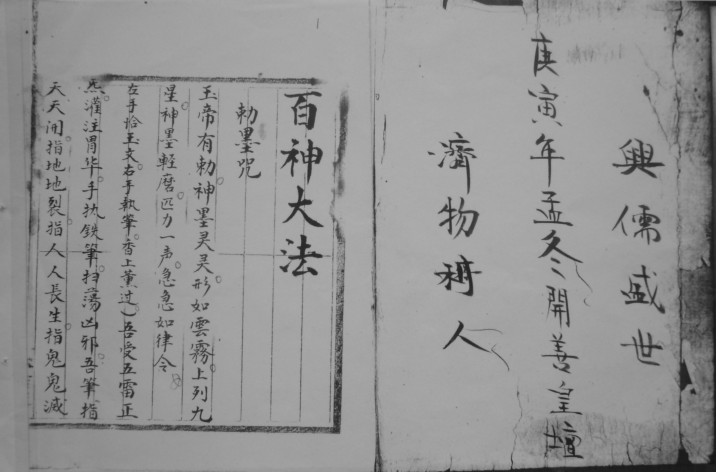 興儒盛世
庚寅年孟冬開善皇壇
濟物利人
百神大法
勅墨咒
玉帝有勅神墨灵灵形如雲霧上列九
星神墨軽磨匹力一声急急如律令
左手恰玉文右手執筆香上薰过吾受五雷正
炁灌注胃华手执鉄筆扫蕩凶邪吾筆指
天天開指地地裂指人人長生指鬼鬼滅